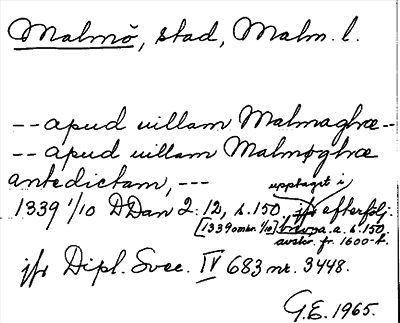 Malmö, stad, Malm. l.
-- apud uillam Malmaghæ --
-- apud uillam Malmøghæ
antedictam, ---
upptaget i
1339 1/10 DDan 2:12, s. 150, jfr efterfölj.
[1339 omkr. 1/10] a. a. s. 150,
avskr. fr. 1600-t.
jfr Dipl. Svec. IV 683 nr. 3448.
G.E. 1965.